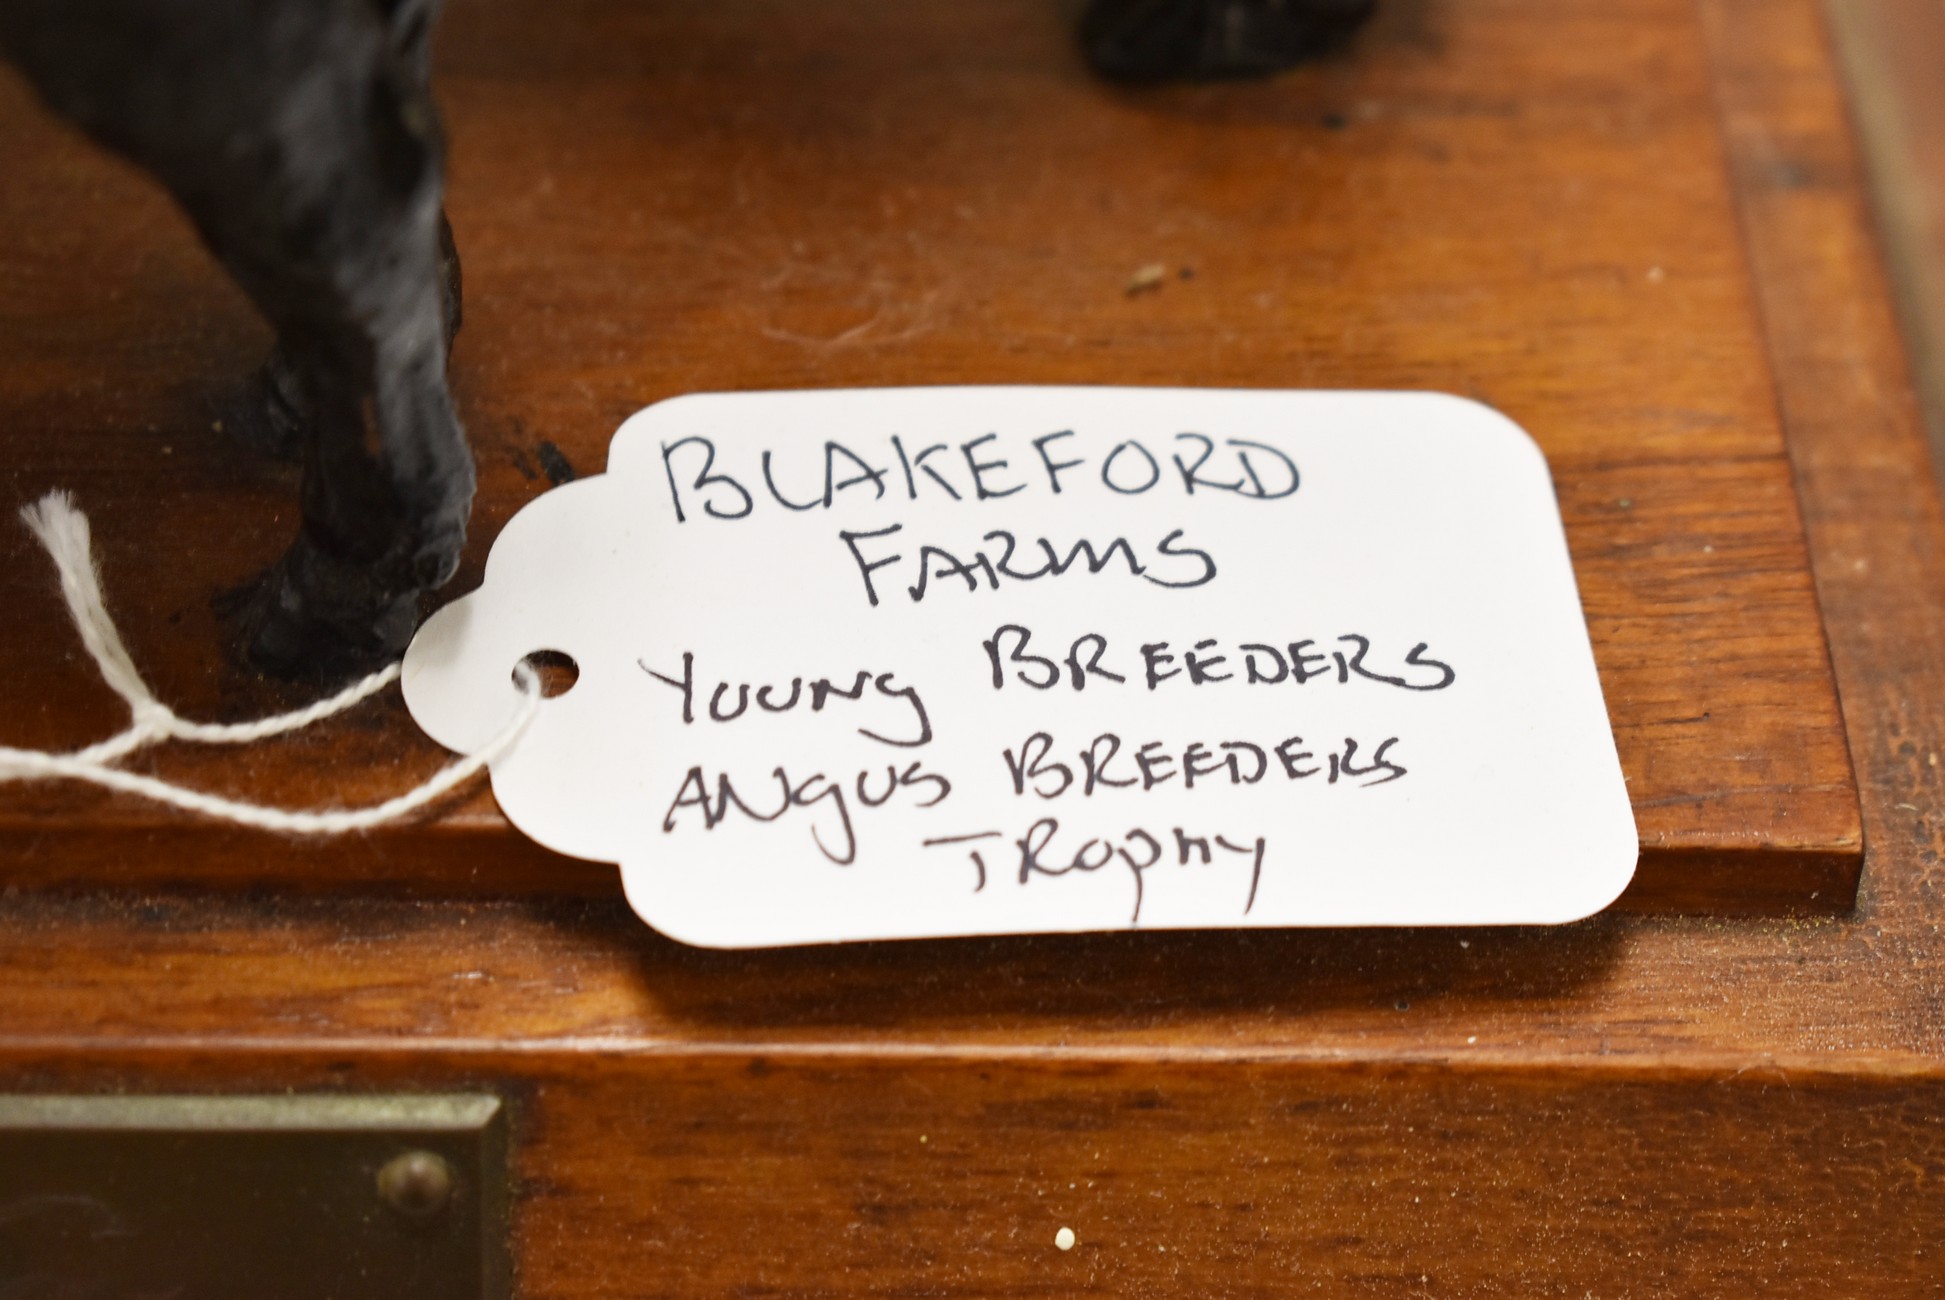 BLAKEFORD
FARMS
YOUNG BREEDERS
ANGUS BREEDERS
TROPHY